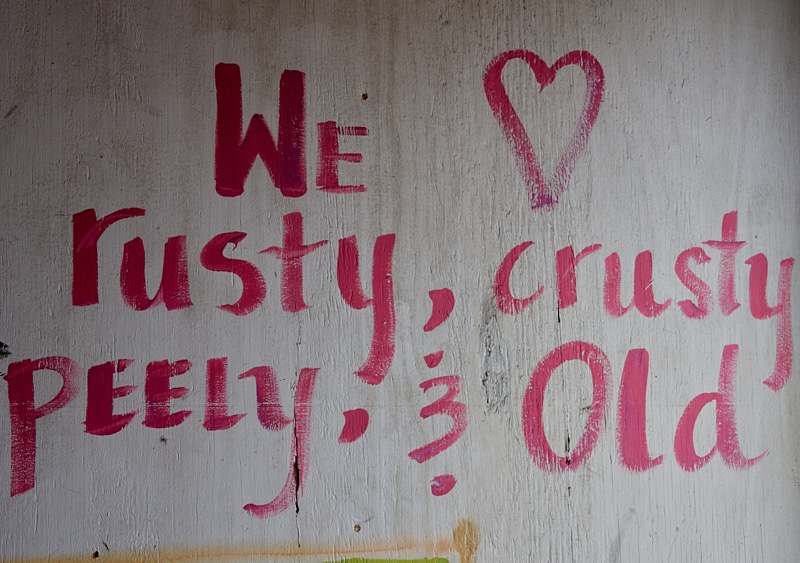 We ♡
rusty, crusty
PEELY, & Old